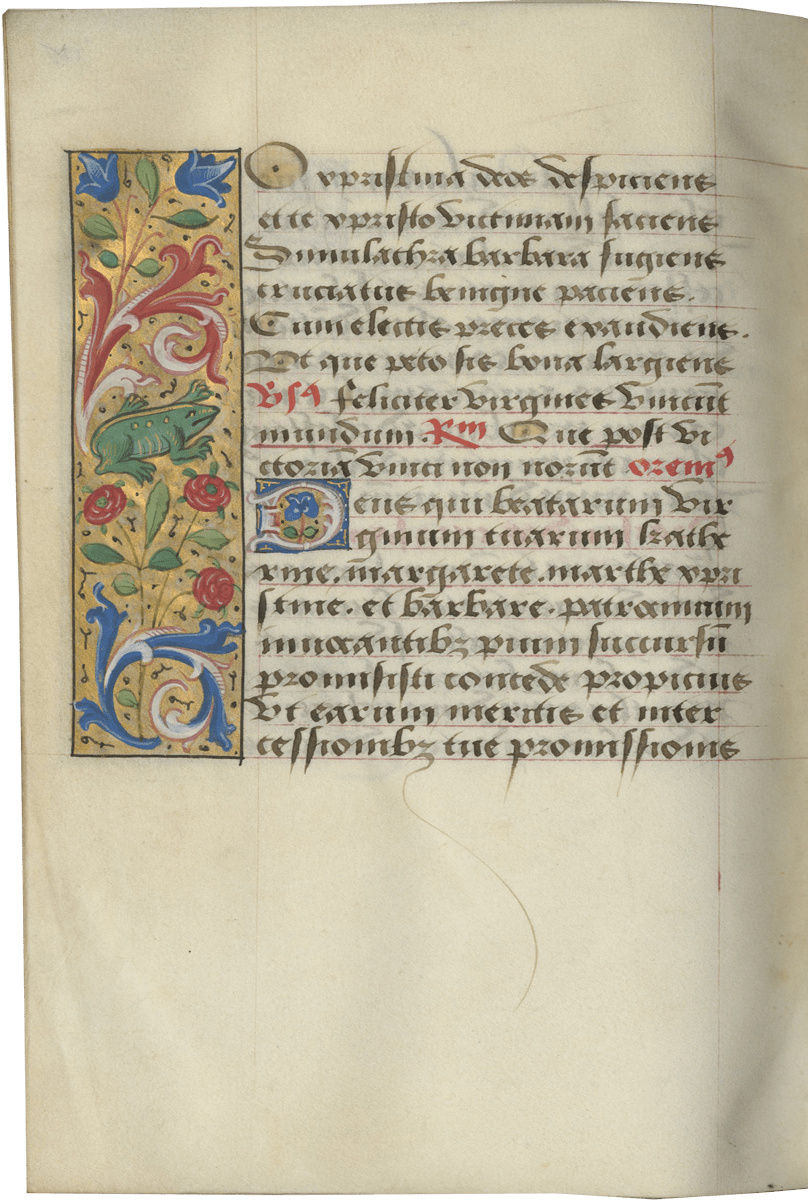 O xpristina deos despiciens
et te xpristo victimam faciens
Simulachra barbara fugiens
cruciatus benigne paciens.
Cum electis preces exaudiens.
Et que peto sis bona largiens
Vsꝰ feliciter virgines vincũt
mundum. Rm̃ Que post vi
ctoriã vinci non norũt oremꝰ
Deus qui beatarum vir
ginum tuarum kathe
rine. margarete. marthe xpri
stine. et barbare. patrocinium
inuocantibꝫ pium succursũ
promisisti concede propicius
vt earum meritis et inter
cessionibꝫ tue promissionis